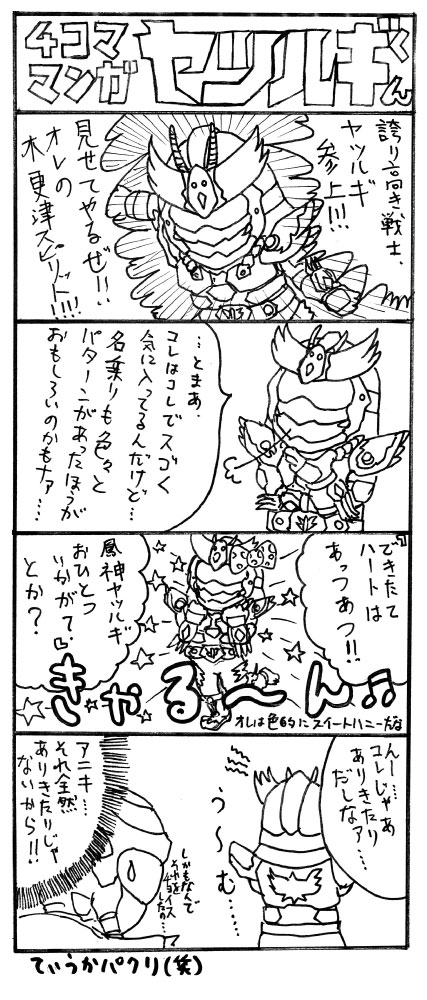 4コマ
マンガ
ヤツルギくん
誇り高き戦士、
ヤツルギ
参上!!!
見せてやるぜ!!
オレの
木更津スピリット!!!!
…とまぁ、
コレはコレでスゴく
気に入ってるんだけど…
名乗りも色々と
パターンがあったほうが
おもしろいのかもナァ…
できたて
ハートは
あっつあつ!!
風神ヤツルギ
おひとつ
いかがで?♡
とか?
きゃる〜ん♫
オレは色的にスイートハニーだな
んー…じゃあ
コレはあ
ありきたり
だしなァ…
う〜む……
アニキ…
それ全然
ありきたりじゃ
ないから!!
しかもなんで
それをチョイス
したの…
ていうかパクリ(笑)